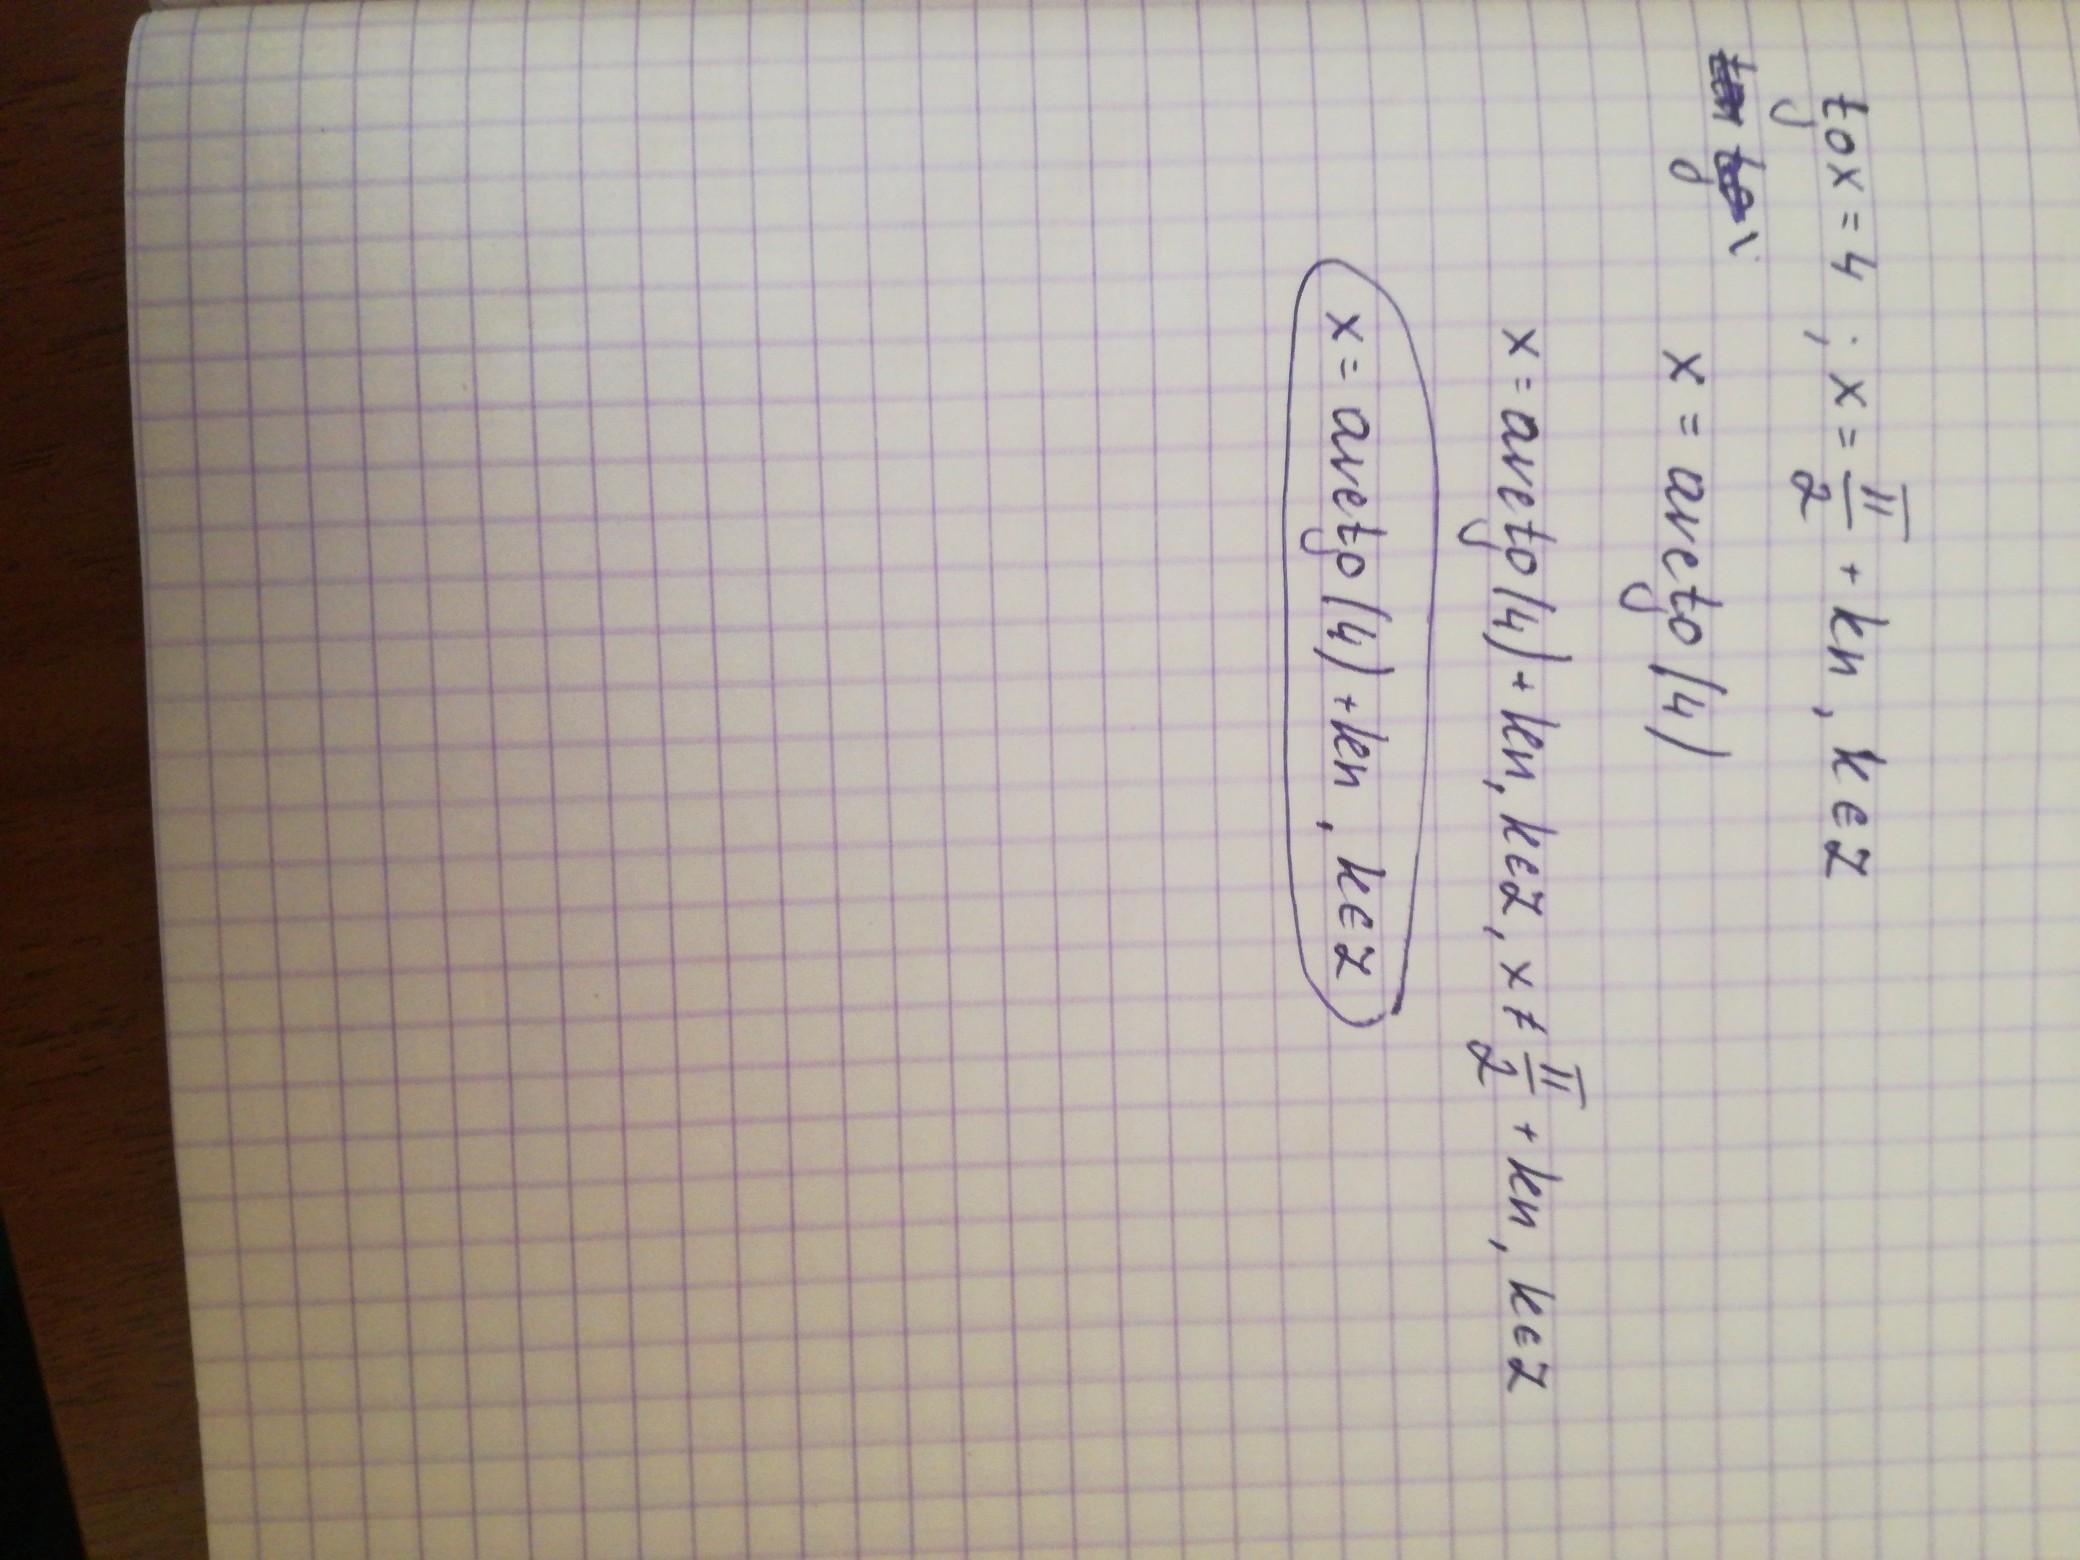 tgx = 4 ; x = π/2 + kn , k ∈ Z
x = arctg (4)
x = arctg (4) + kn, k ∈ Z, x ≠ π/2 + kn, k ∈ Z
x = arctg (4) + kn , k ∈ Z